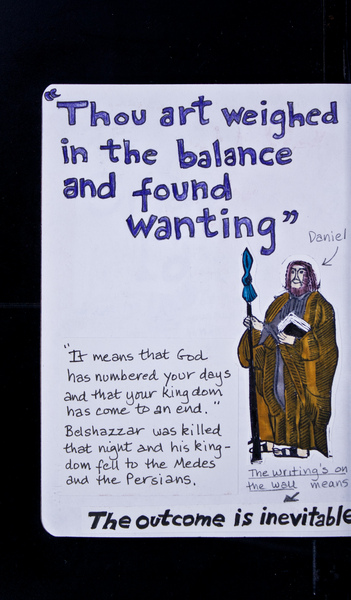 "Thou art weighed
in the balance
and found
wanting"
Daniel
"It means that God
has numbered your days
and that your kingdom
has come to an end."
Belshazzar was killed
that night and his king-
dom fell to the Medes
and the Persians.
The writing's on
the wall means
The outcome is inevitable